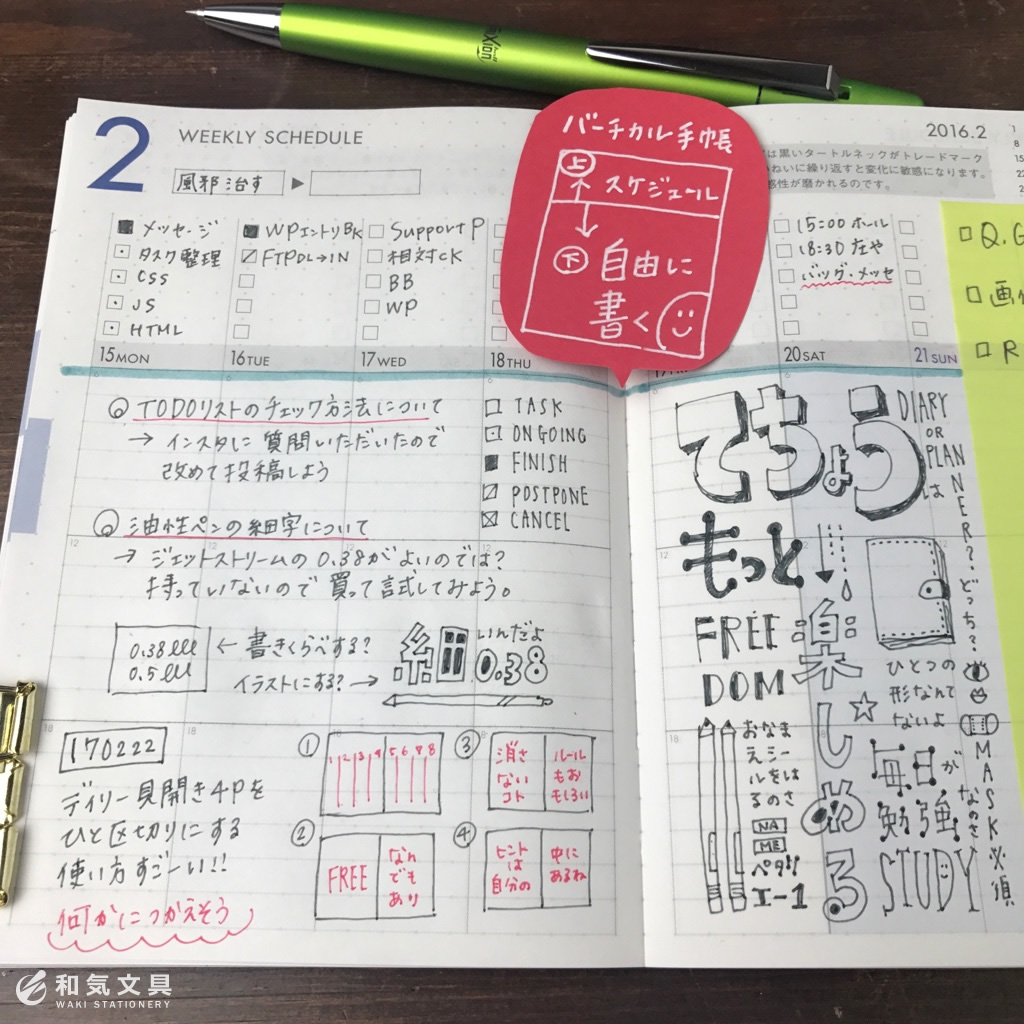 Xion
2
WEEKLY SCHEDULE
風邪治す ▶
2016.2
は黒いタートルネックがトレードマーク
ねいに繰り返すと変化に敏感になります。
感性が磨かれるのです。
バーチカル手帳
上
スケジュール
下
自由に
書く
メッセージ
タスク整理
CSS
JS
HTML
15 MON
WPエントリBK
FTPDL→IN
16 TUE
Support P
相対CK
BB
WP
17 WED
18 THU
15:00 ホール
18:30 左や
バッグ・メッセ
20 SAT
21 SUN
Q.G
R
TODOリストのチェック方法について
→ インスタに質問いただいたので
改めて投稿しよう
TASK
ONGOING
FINISH
POSTPONE
CANCEL
油性ペンの細字について
→ ジェットストリームの0.38がよいのでは?
持っていないので買って試してみよう。
0.38
0.5
← 書きくらべする?
イラストにする? →
細いんだよ
0.38
170222
デイリー見開き4Pを
ひと区切りにする
使い方すごーい!!
何かにつかえそう
①
1 2 3 4 5 6 7 8
②
FREE
なん
でも
あり
③
消さ
ない
コト
ルール
もお
もしろい
④
ヒント
は
自分の
中に
あるね
てちょう
DIARY
OR
PLANNER?
は
どっち?
もっと
FREE
DOM
楽しめる
ひとつの
形なんて
ないよ
毎日が
勉強
なのさ
STUDY
MASK必須
おなま
えシー
ルをは
るのさ
NA
ME
ペタリ
エー1
和気文具
WAKI STATIONERY